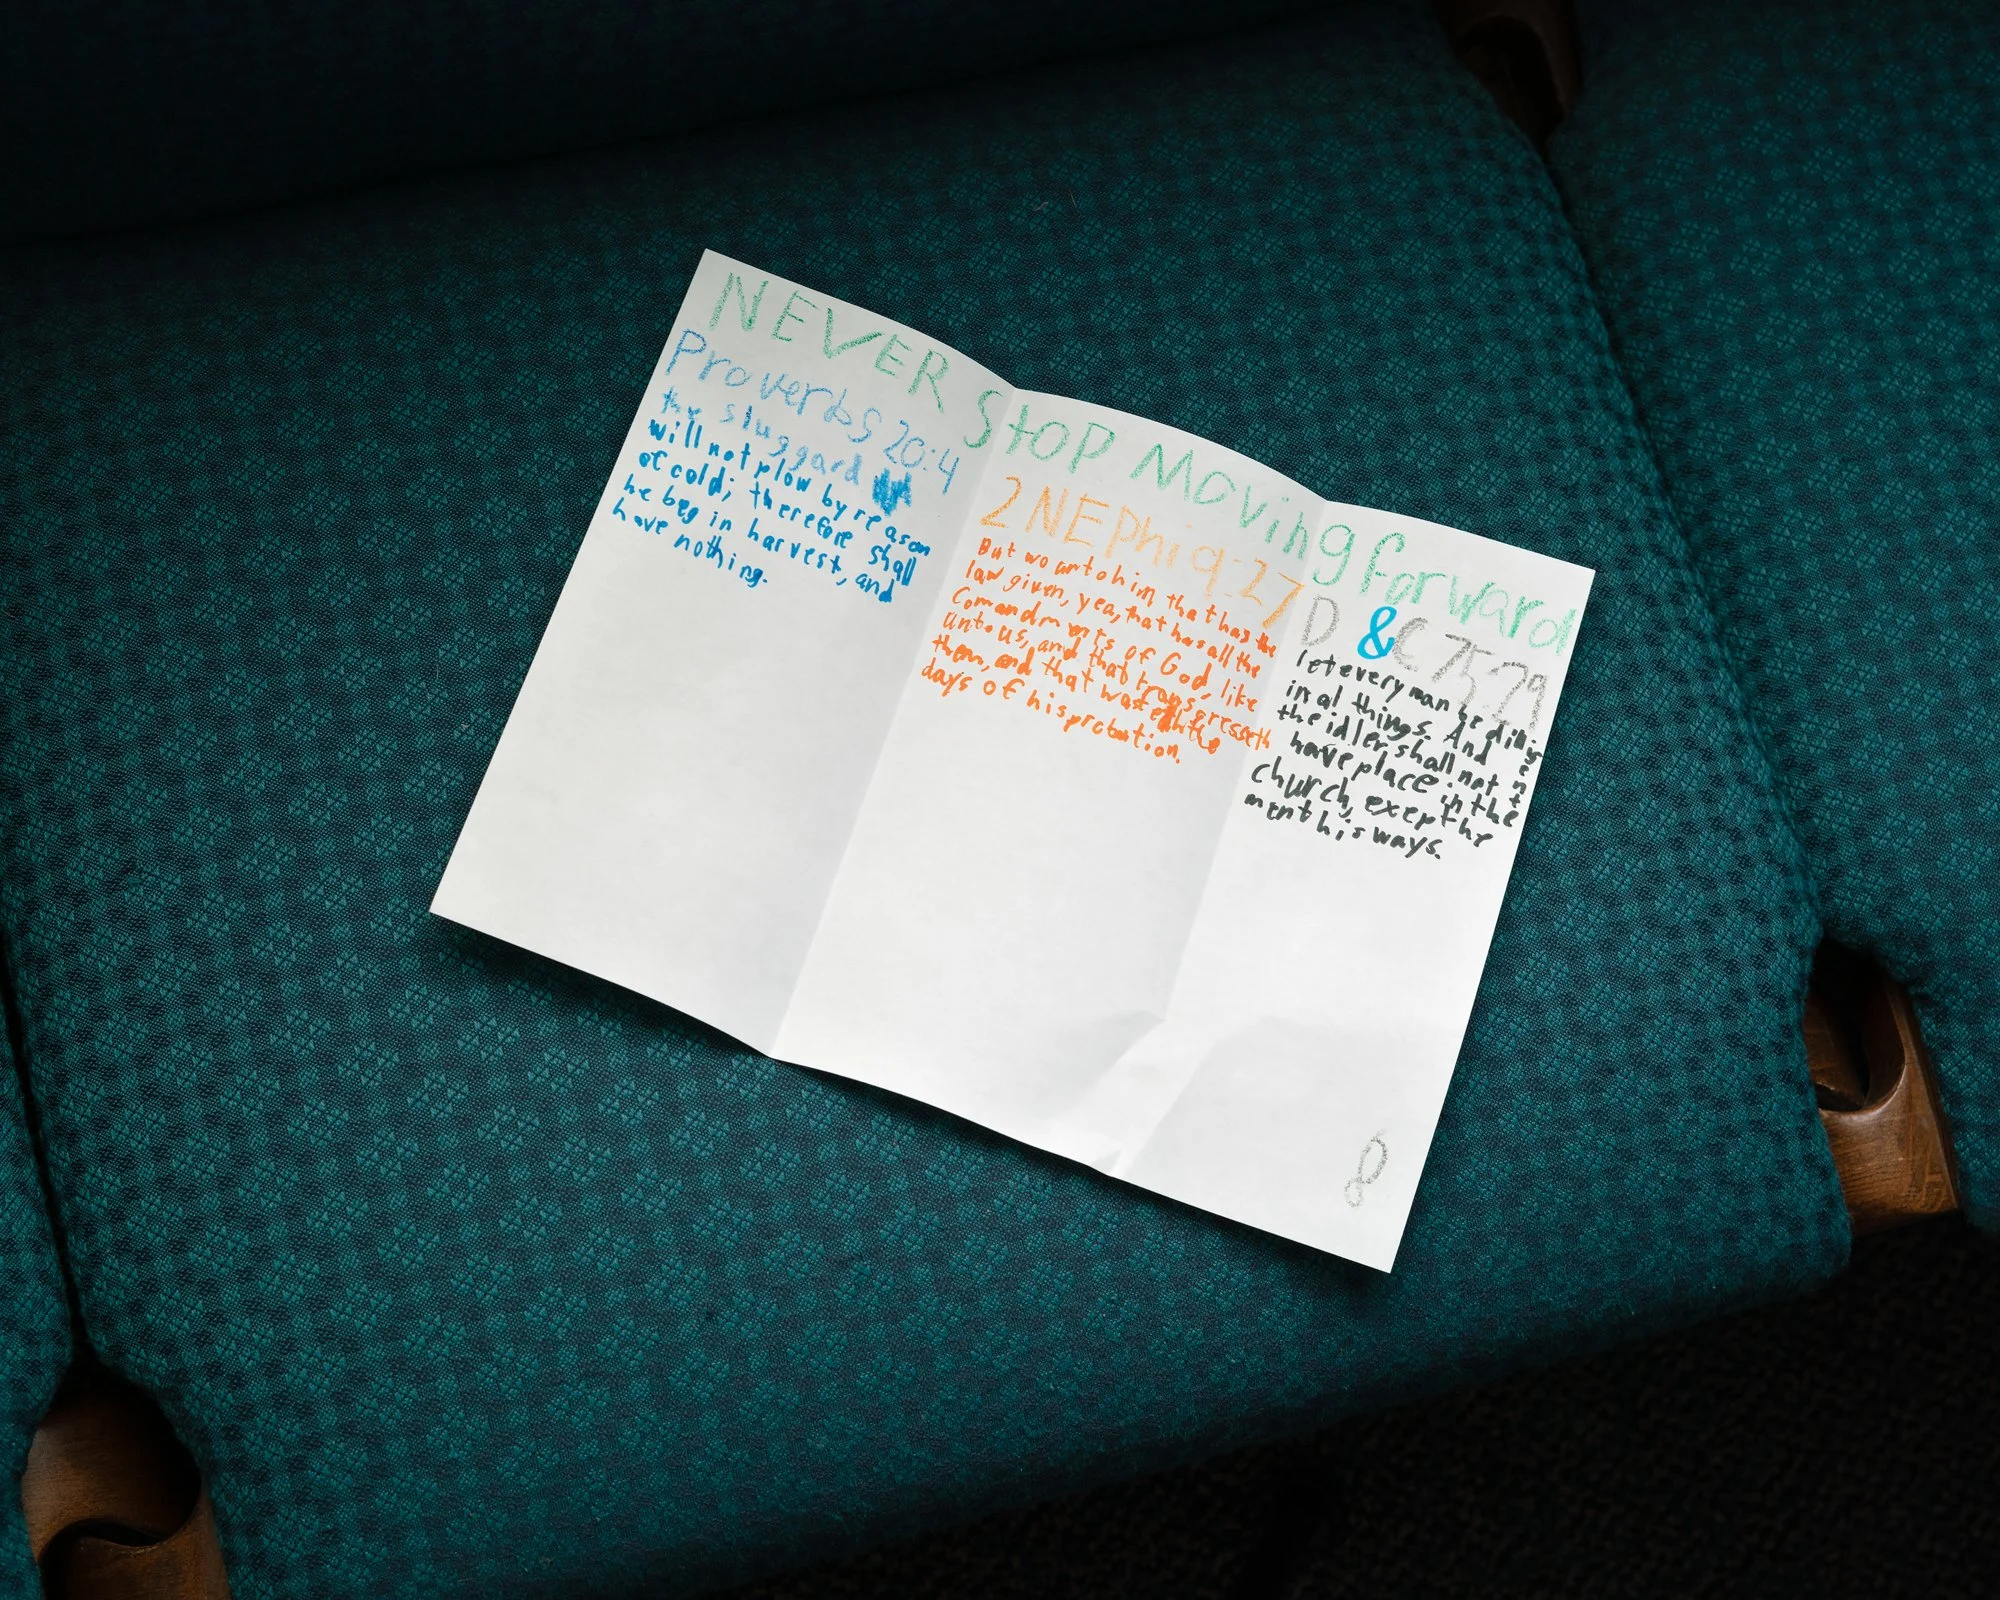 NEVER STOP Moving forward
Proverbs 20:4
the sluggard
will not plow by reason
of cold; therefore shall
he beg in harvest, and
have nothing.
2 NEPhi 9:27
But wo unto him that has the
law given, yea, that has all the
Comandments of God, like
unto us, and that transgresseth
them, and that wasteth the
days of his probation.
D & C 75:29
let every man be diligent
in al things. And
the idler shall not
have place in the
church, exept he
ment his ways.
8